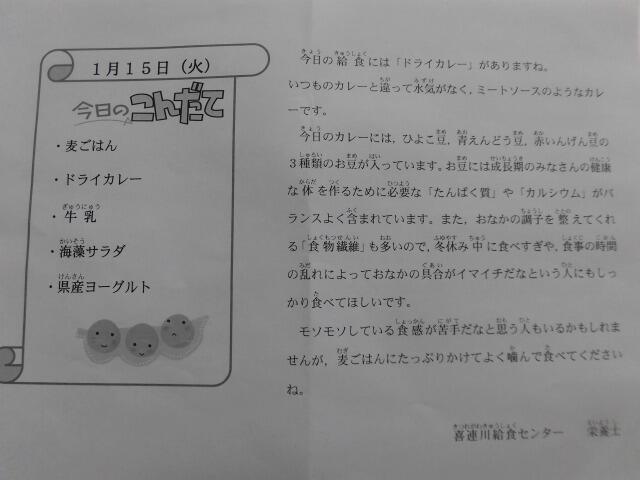 1月15日（火）
今日のこんだて
・麦ごはん
・ドライカレー
・牛乳
・海藻サラダ
・県産ヨーグルト
今日の給食には「ドライカレー」がありますね。
いつものカレーと違って水気がなく，ミートソースのようなカレ
ーです。
今日のカレーには，ひよこ豆，青えんどう豆，赤いんげん豆の
３種類のお豆が入っています。お豆には成長期のみなさんの健康
な体を作るために必要な「たんぱく質」や「カルシウム」がバ
ランスよく含まれています。また，おなかの調子を整えてくれ
る「食物繊維」も多いので，冬休み中に食べすぎや，食事の時間
の乱れによっておなかの具合がイマイチだなという人にもしっ
かり食べてほしいです。
モソモソしている食感が苦手だなと思う人もいるかもしれま
せんが，麦ごはんにたっぷりかけてよく噛んで食べてください
ね。
喜連川給食センター　栄養士